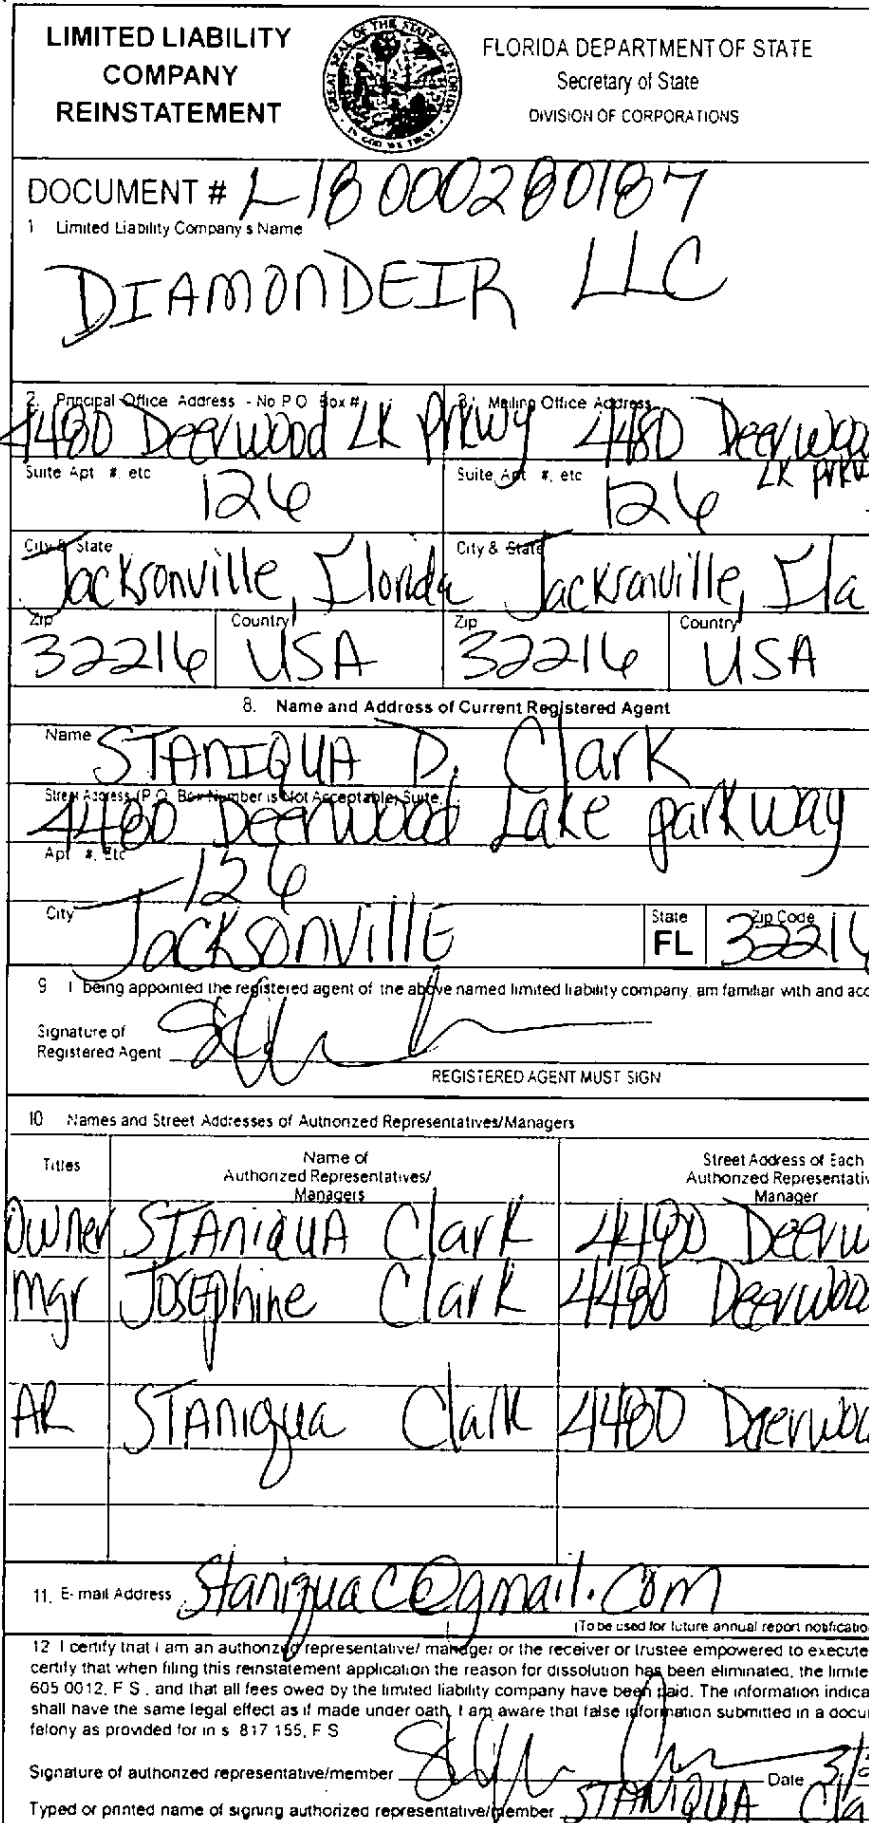 LIMITED LIABILITY
COMPANY
REINSTATEMENT
GREAT SEAL OF THE STATE OF FLORIDA
IN GOD WE TRUST
FLORIDA DEPARTMENT OF STATE
Secretary of State
DIVISION OF CORPORATIONS
DOCUMENT # L18000280187
1 Limited Liability Company's Name
DIAMONDEIR LLC
2. Principal Office Address - No P O Box #
4480 Deerwood LK Prkwy
3. Mailing Office Address
4480 Deerwood
LK prkw
Suite Apt #, etc
126
Suite, Apt #, etc
126
City & State
Jacksonville, Florida
City & State
Jacksonville, Fla
Zip
32216
Country
USA
Zip
32216
Country
USA
8. Name and Address of Current Registered Agent
Name STANIQUA D. Clark
Street Address (P.O. Box Number is Not Acceptable) Suite,
4480 Deerwood Lake parkway
Apt #, Etc
126
City Jacksonville
State
FL
Zip Code
32216
9 I being appointed the registered agent of the above named limited liability company, am familiar with and acc
Signature of
Registered Agent
REGISTERED AGENT MUST SIGN
10 Names and Street Addresses of Authorized Representatives/Managers
Titles
Name of
Authorized Representatives/
Managers
Street Address of Each
Authorized Representativ
Manager
Owner STANIQUA Clark 4480 Deerw
Mgr Josephine Clark 4480 Deerwood
AR STANiqua Clark 4480 Deerwoo
11. E-mail Address StaniquaC@gmail.com
(To be used for future annual report notificatio
12 I certify that I am an authorized representative/ manager or the receiver or trustee empowered to execute
certify that when filing this reinstatement application the reason for dissolution has been eliminated, the limite
605 0012, F S , and that all fees owed by the limited liability company have been paid. The information indica
shall have the same legal effect as if made under oath, I am aware that false information submitted in a docu
felony as provided for in s 817 155, F S
Signature of authorized representative/member
Date 3/
Typed or printed name of signing authorized representative/member STANIQUA Cla